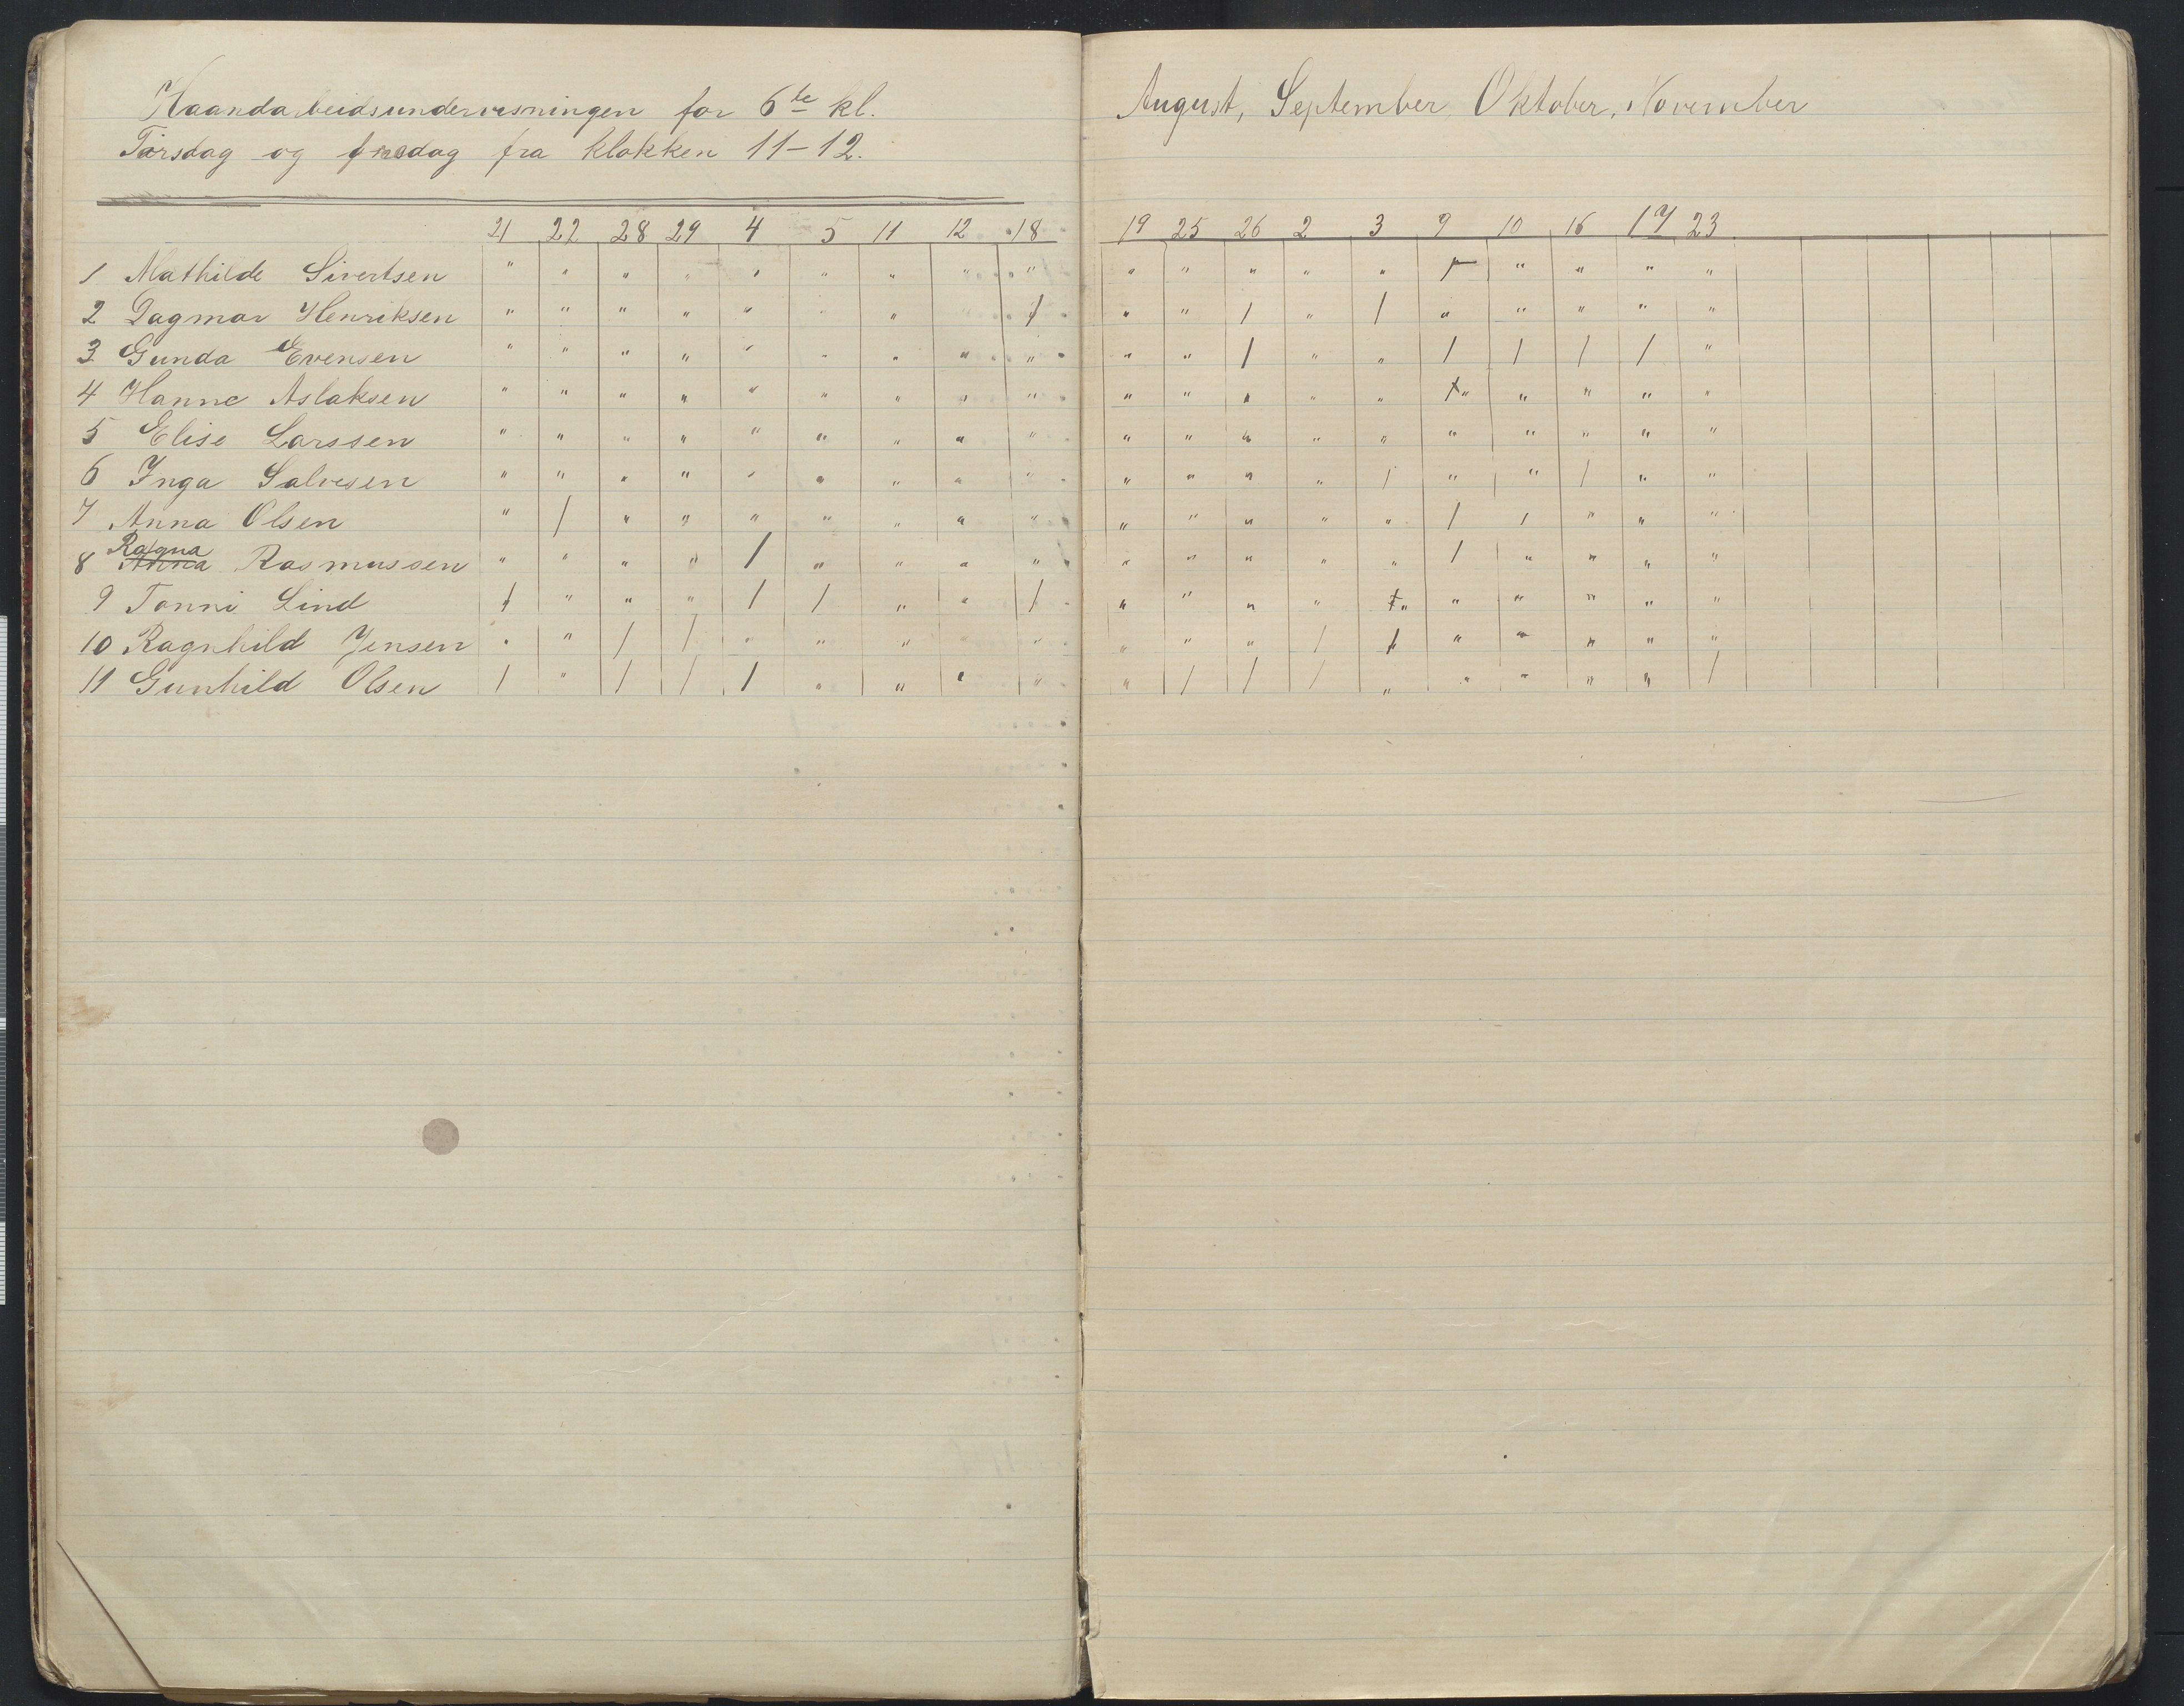 Haandarbeidsundervisningen for 6te kl.
Torsdag og fredag fra klokken 11-12.
21 22 28 29 4 5 11 12 18
1 Mathilde Sivertsen " " " " " " " " "
2 Dagmar Henriksen " " " " " " " " /
3 Gunda Evensen " " " " " " " " "
4 Hanne Aslaksen " " " " " " " " "
5 Elise Larssen " " " " " " " " "
6 Inga Salvesen " " " " " " " " "
7 Anna Olsen " / " " " " " " "
8 Anna Ragna Rasmussen " " " " / " " " "
9 Tonni Lind / " " " / / " " /
10 Ragnhild Jensen " " / / " " " " "
11 Gunhild Olsen / " / / / " " " "
August, September, Oktober, November
19 25 26 2 3 9 10 16 17 23
" " " " " / " " " "
" " / " / " " " " "
" " / " " / / / / "
" " " " " " " " "
" " " " " " " " " "
" " " " / " " / " "
" " " " " / / " " "
" " " " " / " " " "
" " " " " " " " "
" " " / / " " " " "
" / / / " " " " " /